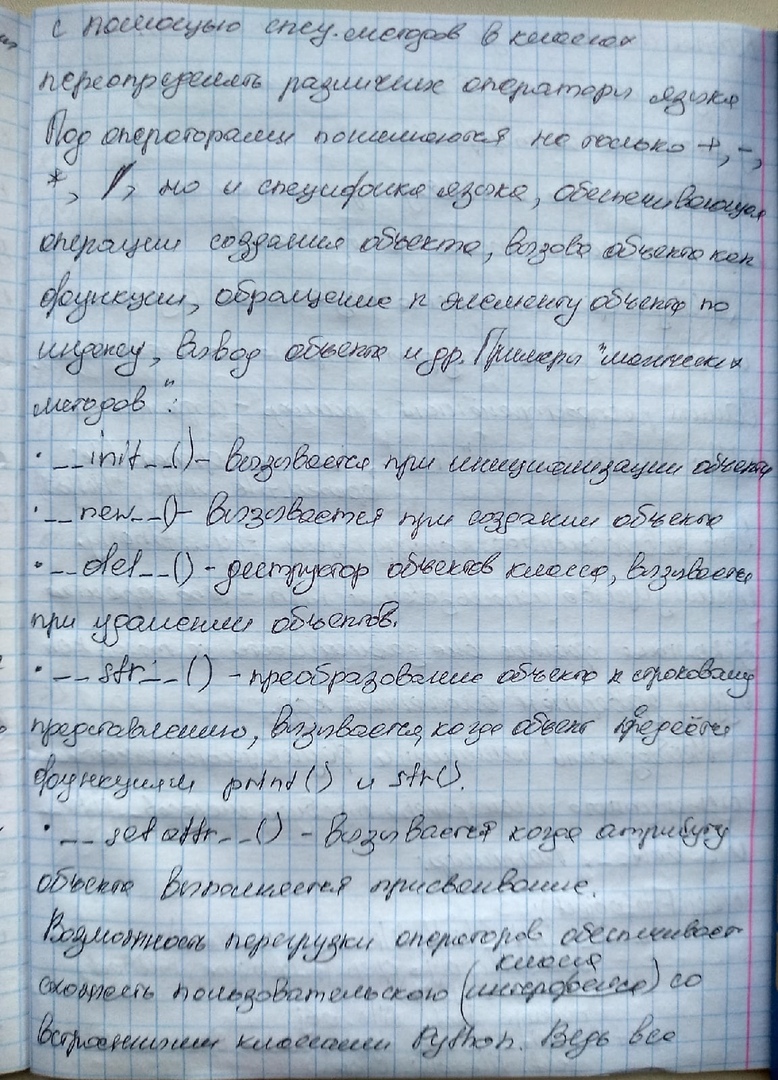 с помощью спец. методов в классах
переопределять различные операторы языка
Под операторами понимаются не только +, -,
*, /, но и специфика языка, обеспечивающая
операции создания объекта, вызова объекта как
функции, обращение к элементу объекта по
индексу, вывод объекта и др. Примеры "магических
методов":
• __init__() - вызывается при инициализации объекта
• __new__() - вызывается при создании объекта
• __del__() - деструктор объектов класса, вызывается
при удалении объектов.
• __str__() - преобразование объекта к строковому
представлению, вызывается, когда объект передаётся
функциям print() и str().
• __setattr__() - вызывается когда атрибуту
объекта выполняется присваивание.
Возможность перегрузки операторов обеспечивает
схожесть пользовательского класса (интерфейса) со
встроенными классами Python. Ведь все